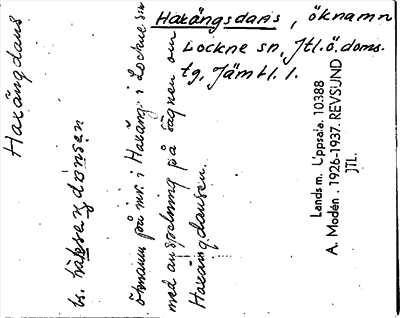 Haxängsdans, öknamn
Lockne sn, Jtl.ö.doms.
tg, Jämtl. l.
Haxängdans
bs. häksenz dönsen
öknamn på inv. i Haxäng i Lockne sn
med anspelning på sägnen om
Haxängdansen.
Landsm. Uppsala. 10388
A. Modén. 1926-1937. REVSUND
JTL.